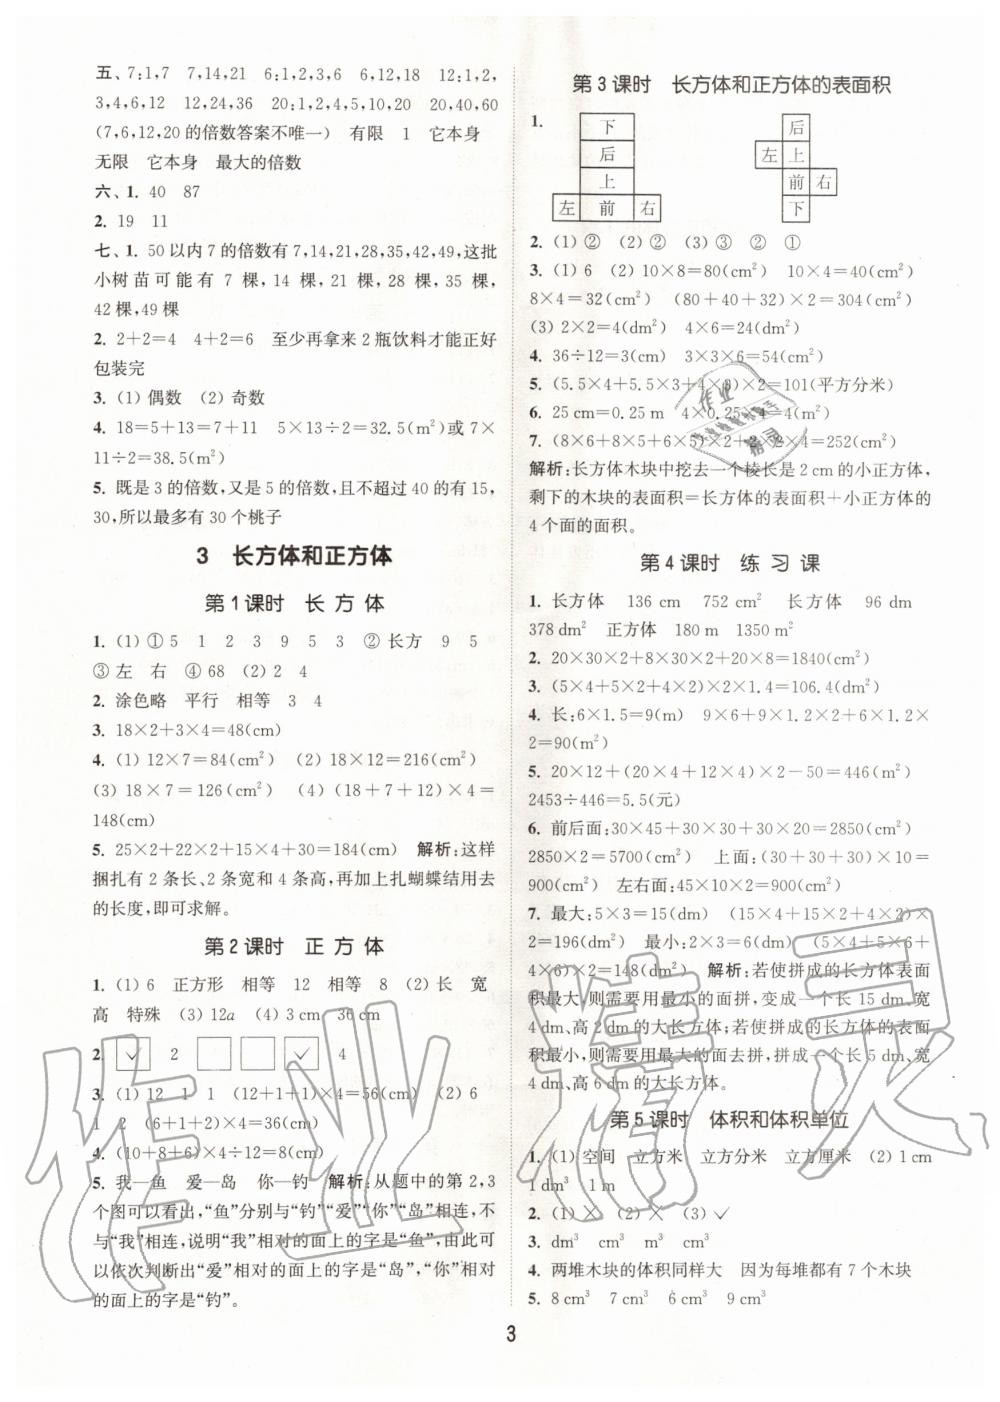 五、7:1,7　7,14,21　6:1,2,3,6　6,12,18　12:1,2,
3,4,6,12　12,24,36　20:1,2,4,5,10,20　20,40,60
(7,6,12,20 的倍数答案不唯一)　有限　1　它本身
无限　它本身　最大的倍数
六、1. 40　87
2. 19　11
七、1. 50 以内 7 的倍数有 7,14,21,28,35,42,49,这批
小树苗可能有 7 棵, 14 棵, 21 棵, 28 棵, 35 棵,
42 棵,49 棵
2. 2+2=4　4+2=6　至少再拿来 2 瓶饮料才能正好
包装完
3. (1) 偶数　(2) 奇数
4. 18=5+13=7+11　5×13÷2=32.5(m²)或 7×
11÷2=38.5(m²)
5. 既是 3 的倍数,又是 5 的倍数,且不超过 40 的有 15,
30,所以最多有 30 个桃子
3　长方体和正方体
第 1 课时　长 方 体
1. (1) ① 5　1　2　3　9　5　3　② 长方　9　5
③ 左　右　④ 68　(2) 2　4
2. 涂色略　平行　相等　3　4
3. 18×2+3×4=48(cm)
4. (1) 12×7=84(cm²)　(2) 18×12=216(cm²)
(3) 18×7=126(cm²)　(4) (18+7+12)×4=
148(cm)
5. 25×2+22×2+15×4+30=184(cm)　解析:这样
捆扎有 2 条长、2 条宽和 4 条高,再加上扎蝴蝶结用去
的长度,即可求解。
第 2 课时　正 方 体
1. (1) 6　正方形　相等　12　相等　8　(2) 长　宽
高　特殊　(3) 12a　(4) 3 cm　36 cm
2. ✓　2　✓　4
3. (1) 12　1　1　(12+1+1)×4=56(cm)　(2) 6
1　2　(6+1+2)×4=36(cm)
4. (10+8+6)×4÷12=8(cm)
5. 我—鱼　爱—岛　你—钓　解析:从题中的第 2,3
个图可以看出,“鱼”分别与“钓”“爱”“你”“岛”相连,不
与“我”相连,说明“我”相对的面上的字是“鱼”,由此可
以依次判断出“爱”相对的面上的字是“岛”,“你”相对
的面上的字是“钓”。
第 3 课时　长方体和正方体的表面积
1.
下
后
上
左　前　右
后
左　上
前　右
下
2. (1) ②　(2) ②　(3) ③　②　①
3. (1) 6　(2) 10×8=80(cm²)　10×4=40(cm²)
8×4=32(cm²)　(80+40+32)×2=304(cm²)
(3) 2×2=4(dm²)　4×6=24(dm²)
4. 36÷12=3(cm)　3×3×6=54(cm²)
5. (5.5×4+5.5×3+4×3)×2=101(平方分米)
6. 25 cm=0.25 m　4×0.25×4=4(m²)
7. (8×6+8×5+6×5)×2+2×2×4=252(cm²)
解析:长方体木块中挖去一个棱长是 2 cm 的小正方体,
剩下的木块的表面积=长方体的表面积+小正方体的
4 个面的面积。
第 4 课时　练 习 课
1. 长方体　136 cm　752 cm²　长方体　96 dm
378 dm²　正方体　180 m　1350 m²
2. 20×30×2+8×30×2+20×8=1840(cm²)
3. (5×4+5×2+4×2)×2×1.4=106.4(dm²)
4. 长:6×1.5=9(m)　9×6+9×1.2×2+6×1.2×
2=90(m²)
5. 20×12+(20×4+12×4)×2-50=446(m²)
2453÷446=5.5(元)
6. 前后面:30×45+30×30+30×20=2850(cm²)
2850×2=5700(cm²)　上面:(30+30+30)×10=
900(cm²)　左右面:45×10×2=900(cm²)
7. 最大:5×3=15(dm)　(15×4+15×2+4×2)×
2=196(dm²)　最小:2×3=6(dm)　(5×4+5×6+
4×6)×2=148(dm²)　解析:若使拼成的长方体表面
积最大,则需要用最小的面拼,变成一个长 15 dm、宽
4 dm、高 2 dm 的大长方体;若使拼成的长方体的表面
积最小,则需要用最大的面去拼,拼成一个长 5 dm、宽
4 dm、高 6 dm 的大长方体。
第 5 课时　体积和体积单位
1. (1) 空间　立方米　立方分米　立方厘米　(2) 1 cm
1 dm³　1 m
2. (1) ×　(2) ×　(3) ✓
3. dm³　cm³　m³　cm³
4. 两堆木块的体积同样大　因为每堆都有 7 个木块
5. 8 cm³　7 cm³　6 cm³　9 cm³
3
作业精灵